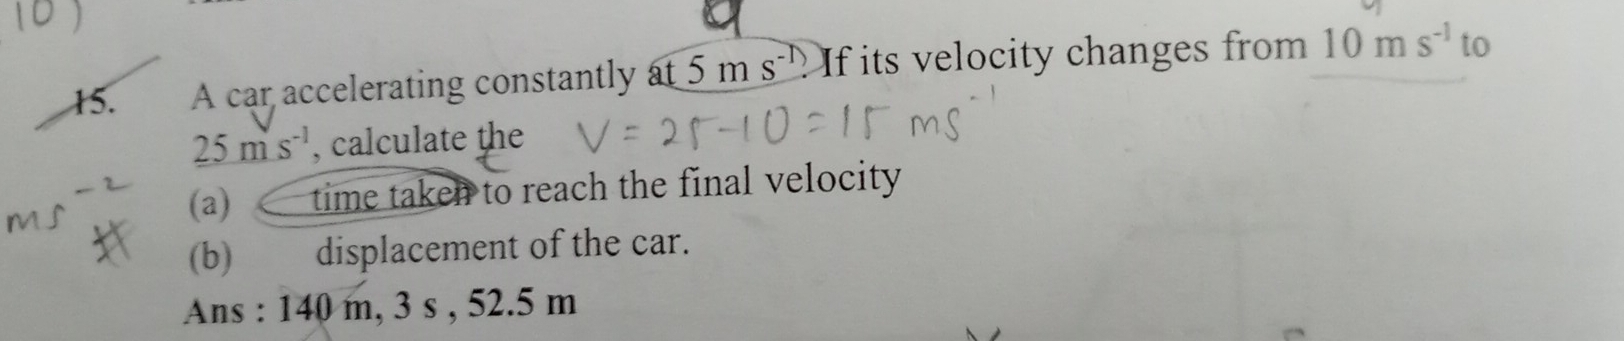 10)
a
15. A car accelerating constantly at 5 m s⁻¹. If its velocity changes from 10 m s⁻¹ to
25 m s⁻¹, calculate the V = 25-10 = 15 ms⁻¹
(a) time taken to reach the final velocity
ms⁻²
(b) displacement of the car.
Ans : 140 m, 3 s , 52.5 m